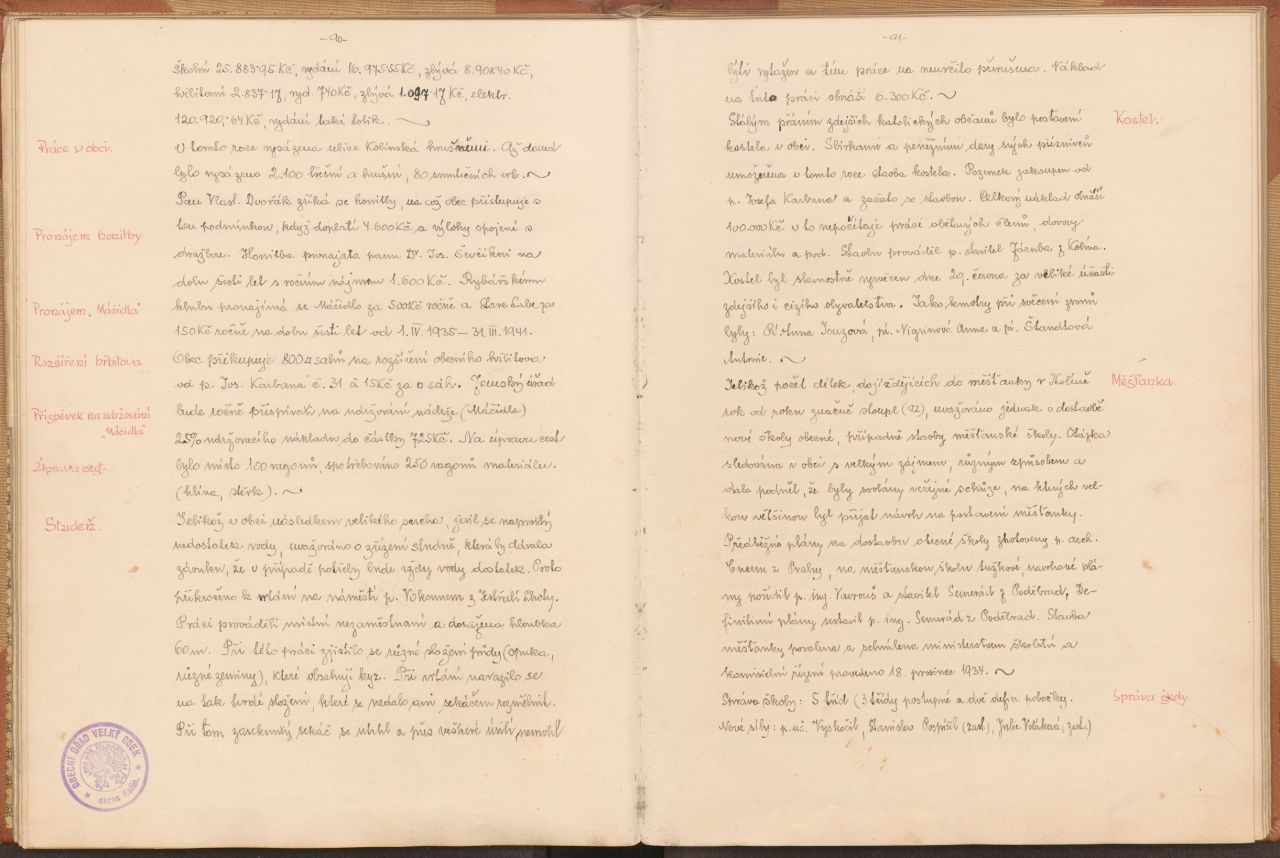 -90-
školní 25.883·95 Kč, vydání 16.975·55 Kč, zbývá 8.908·40 Kč,
hřbitovní 2.837·17, vyd. 740 Kč, zbývá 1.097·17 Kč, elektr.
120.920·64 Kč, vydání také tolik.
Práce v obci.
V tomto roce vysázena ulice Kolínská hrušněmi. Až dosud
bylo vysázeno 2.100 třešní a hrušní, 80 smutečních vrb.
Pan Vlast. Dvořák zříká se honitby, na což obec přistupuje s
Pronájem honitby.
tou podmínkou, když doplatí 4.600 Kč a výlohy spojené s
dražbou. Honitba pronajata panu Dr. Jos. Ševčíkovi na
dobu šesti let s ročním nájmem 1.600 Kč. Rybářskému
Pronájem „Máčidla"
klubu pronajímá se Máčidlo za 500 Kč ročně a Staré Labe za
150 Kč ročně na dobu šesti let od 1. IV. 1935 – 31. III. 1941.
Rozšíření hřbitova.
Obec přikupuje 800 □ sáhů na rozšíření obecního hřbitova
od p. Jos. Karbana č. 31 à 15 Kč za □ sáh. Zemský úřad
Příspěvek na udržování „Máčidla"
bude ročně přispívati na udržování nádrže (Máčidla)
25% udržovacího nákladu do částky 725 Kč. Na úpravu cest
Úprava cest.
bylo místo 100 vagonů, spotřebováno 250 vagonů materiálu.
(hlína, štěrk).
Studeň.
Jelikož v obci následkem velikého sucha, jevil se naprostý
nedostatek vody, uvažováno o zřízení studně, která by dávala
záruku, že v případě potřeby bude vždy vody dostatek. Proto
přikročeno k vrtání na náměstí p. Vokounem z Lhoty.
Práci prováděli místní nezaměstnaní a dosažena hloubka
60 m. Při této práci zjistilo se různé složení půdy (opuka,
různé zeminy), které obsahují kyz. Při vrtání narazilo se
na tak tvrdé složení, které se nedalo ani sekáčem rozmělnit.
Při tom zaseknutý sekáč se utrhl a přes veškeré úsilí nemohl
OBECNÍ ÚŘAD VELKÝ OSEK
okres Kolín.
-91-
býti vytažen a tím práce na neurčito přerušena. Náklad
na tuto práci obnáší 6.300 Kč.
Kostel.
Stálým přáním zdejších katolických občanů bylo postavení
kostela v obci. Sbírkami a peněžními dary svých příznivců
umožněna v tomto roce stavba kostela. Pozemek zakoupen od
p. Josefa Karbana a začato se stavbou. Celkový náklad obnáší
100.000 Kč v to nepočítaje práci obětavých členů, dovozy
materiálu a pod. Stavbu prováděl p. stavitel Záruba z Kolína.
Kostel byl slavnostně vysvěcen dne 29. června za veliké účasti
zdejšího i cizího obyvatelstva. Jako kmotry při svěcení zvonů
byly: Pí. Anna Jouzová, pí. Nigrinová Anna a pí. Štandtová
Antonie.
Měšťanka.
Jelikož počet dítek dojíždějících do měšťanky v Kolíně
rok od roku značně stoupl (92), uvažováno jednak o dostavbě
nové školy obecné, případně stavby měšťanské školy. Otázka
sledována v obci s velkým zájmem, různým způsobem a
dala podnět, že byly svolány veřejné schůze, na kterých vel-
kou většinou byl přijat návrh na postavení měšťanky.
Předběžné plány na dostavbu obecné školy zhotoveny p. arch.
z Prahy, na měšťanskou školu tužkové, návrhové plá-
ny pořídil p. ing. Vavrouš a stavitel Semerád z Poděbrad. De-
finitivní plány sestavil p. ing. Semerád z Poděbrad. Stavba
měšťanky povolena a schválena ministerstvem školství a
komisielní řízení provedeno 18. prosince 1934.
Správa školy.
Správa školy: 5 tříd (3 třídy postupné a dvě defin. pobočky.
Nové síly: p. uč. Vyskočil, Stanislav Pospíšil (zast.), Julie Votáková (zast.)